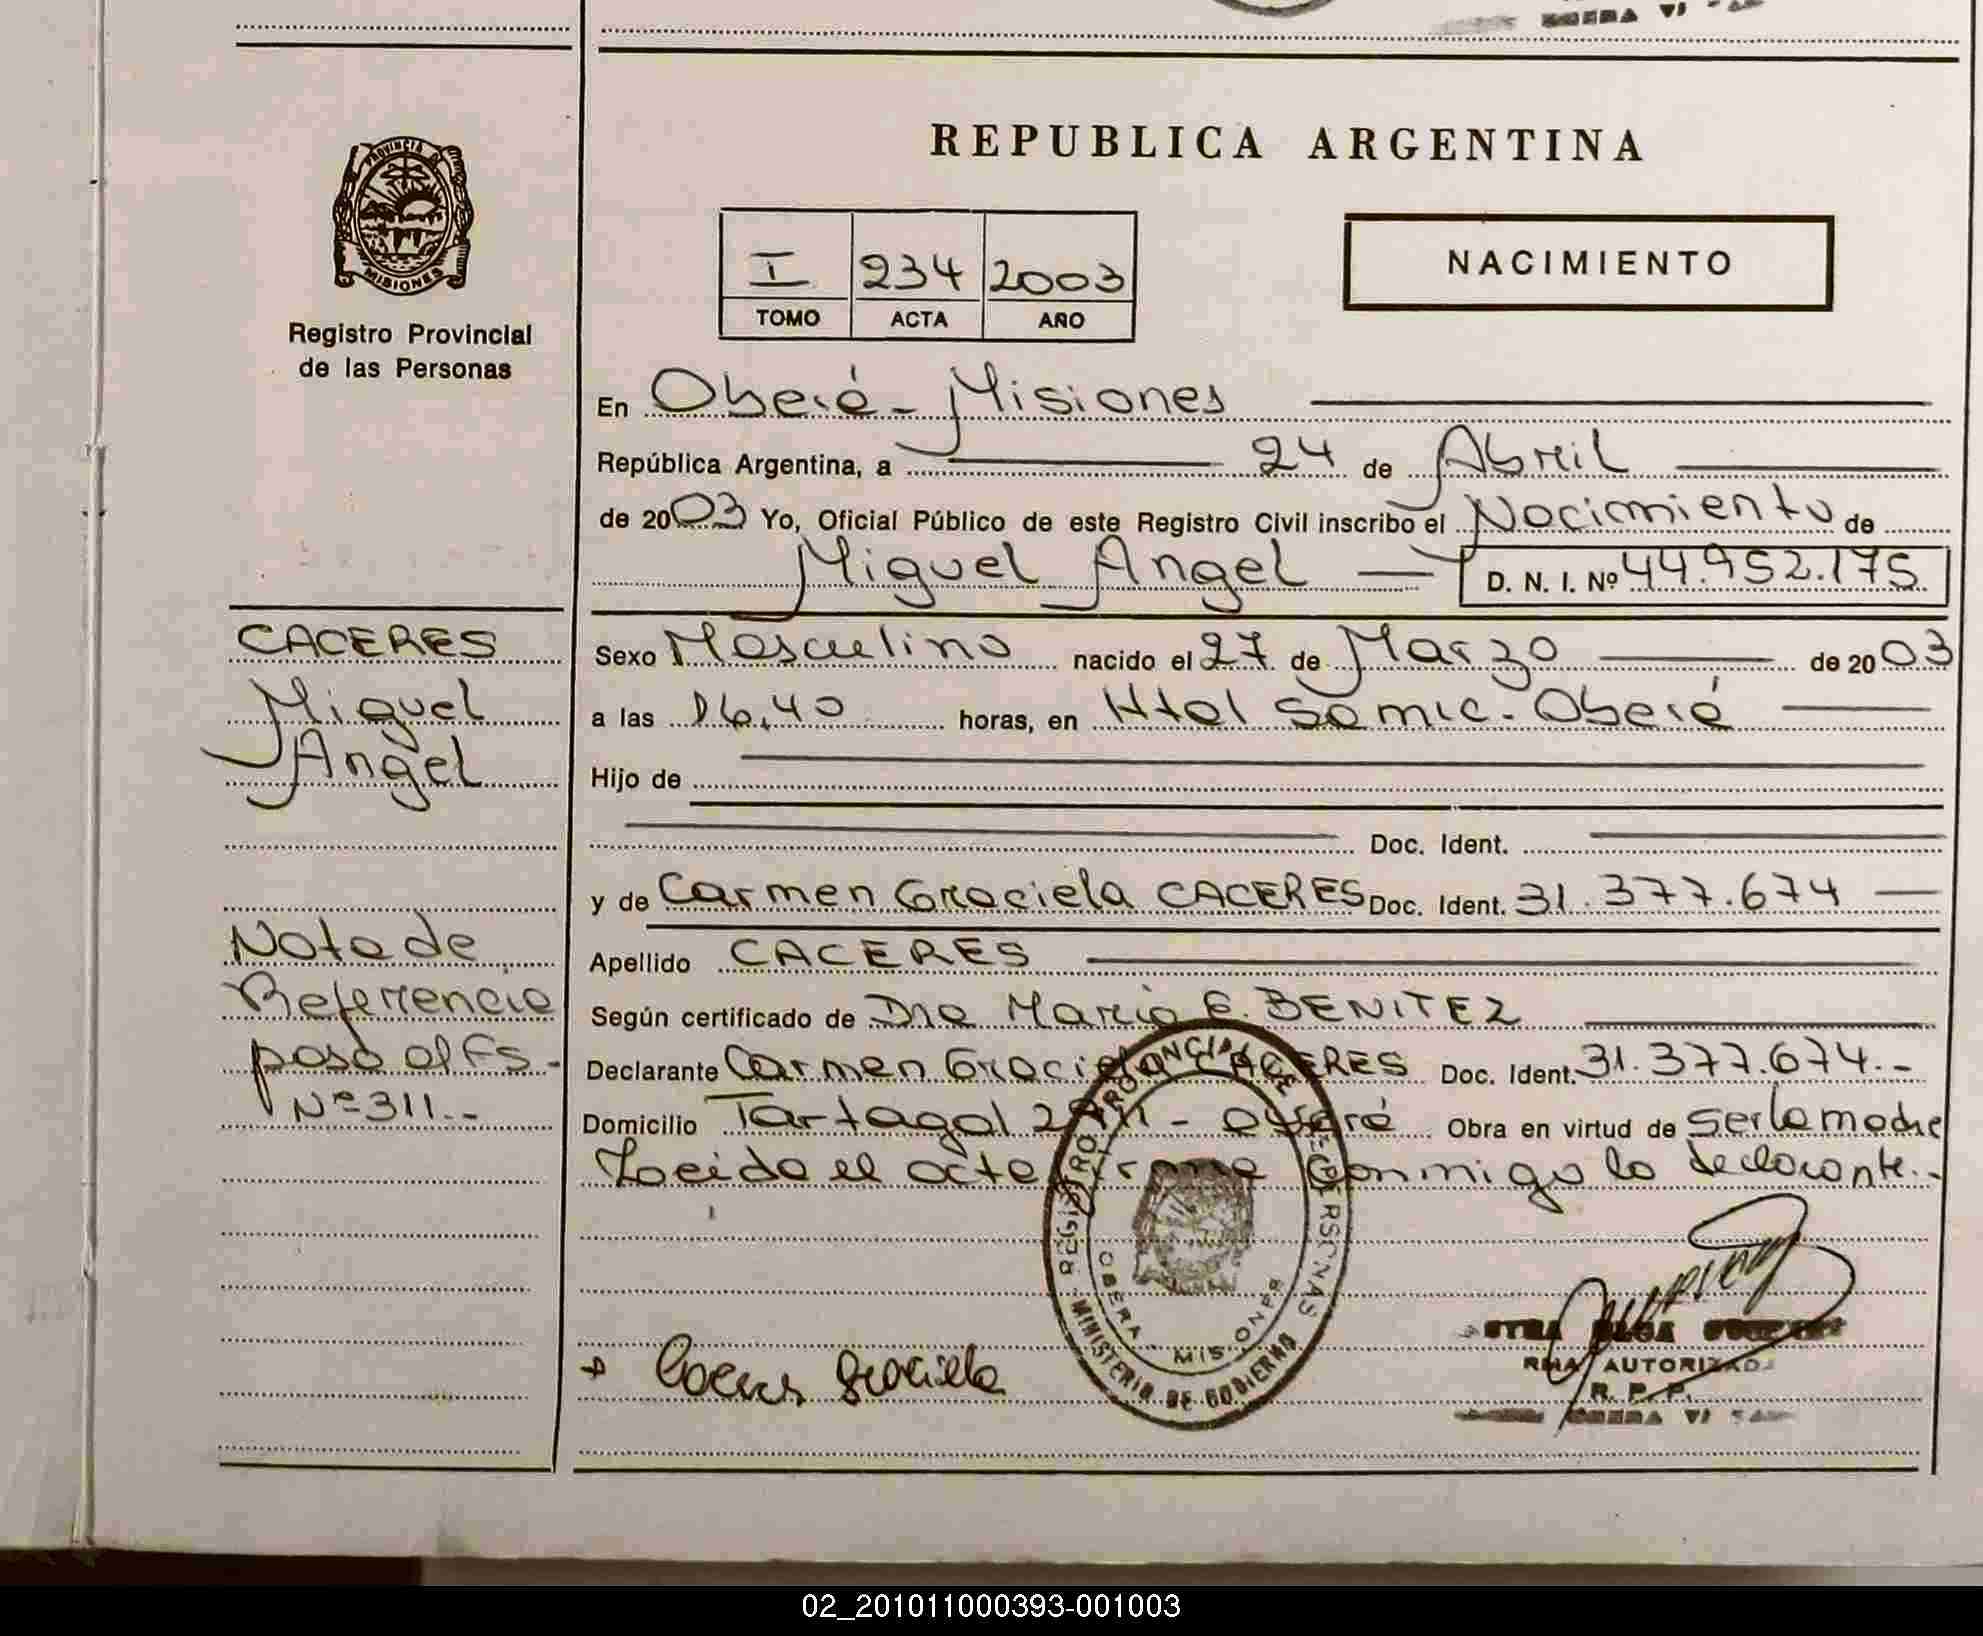 REPUBLICA ARGENTINA
PROVINCIA DE
MISIONES
Registro Provincial
de las Personas
I 234 2003
TOMO ACTA AÑO
NACIMIENTO
En Oberá - Misiones
República Argentina, a 24 de Abril
de 2003 Yo, Oficial Público de este Registro Civil inscribo el Nacimiento de
Miguel Angel D. N. I. Nº 44.952.175
CACERES
Miguel
Angel
Sexo Masculino nacido el 27 de Marzo de 2003
a las 16,40 horas, en Htal Samic - Oberá
Hijo de
Doc. Ident.
y de Carmen Graciela CACERES Doc. Ident. 31.377.674
Apellido CACERES
Según certificado de Dra Maria E. BENITEZ
Declarante Carmen Graciela CACERES Doc. Ident. 31.377.674.-
Domicilio Tartagal - Oberá Obra en virtud de ser la madre
Leida el acta firma conmigo la declarante.-
Nota de
Referencia
pasa al Fs-
Nº 311.-
REGISTRO PROVINCIAL DE LAS PERSONAS
OBERA MISIONES
MINISTERIO DE GOBIERNO
Caceres Graciela
AUTORIZADA
R. P. P.
02_201011000393-001003